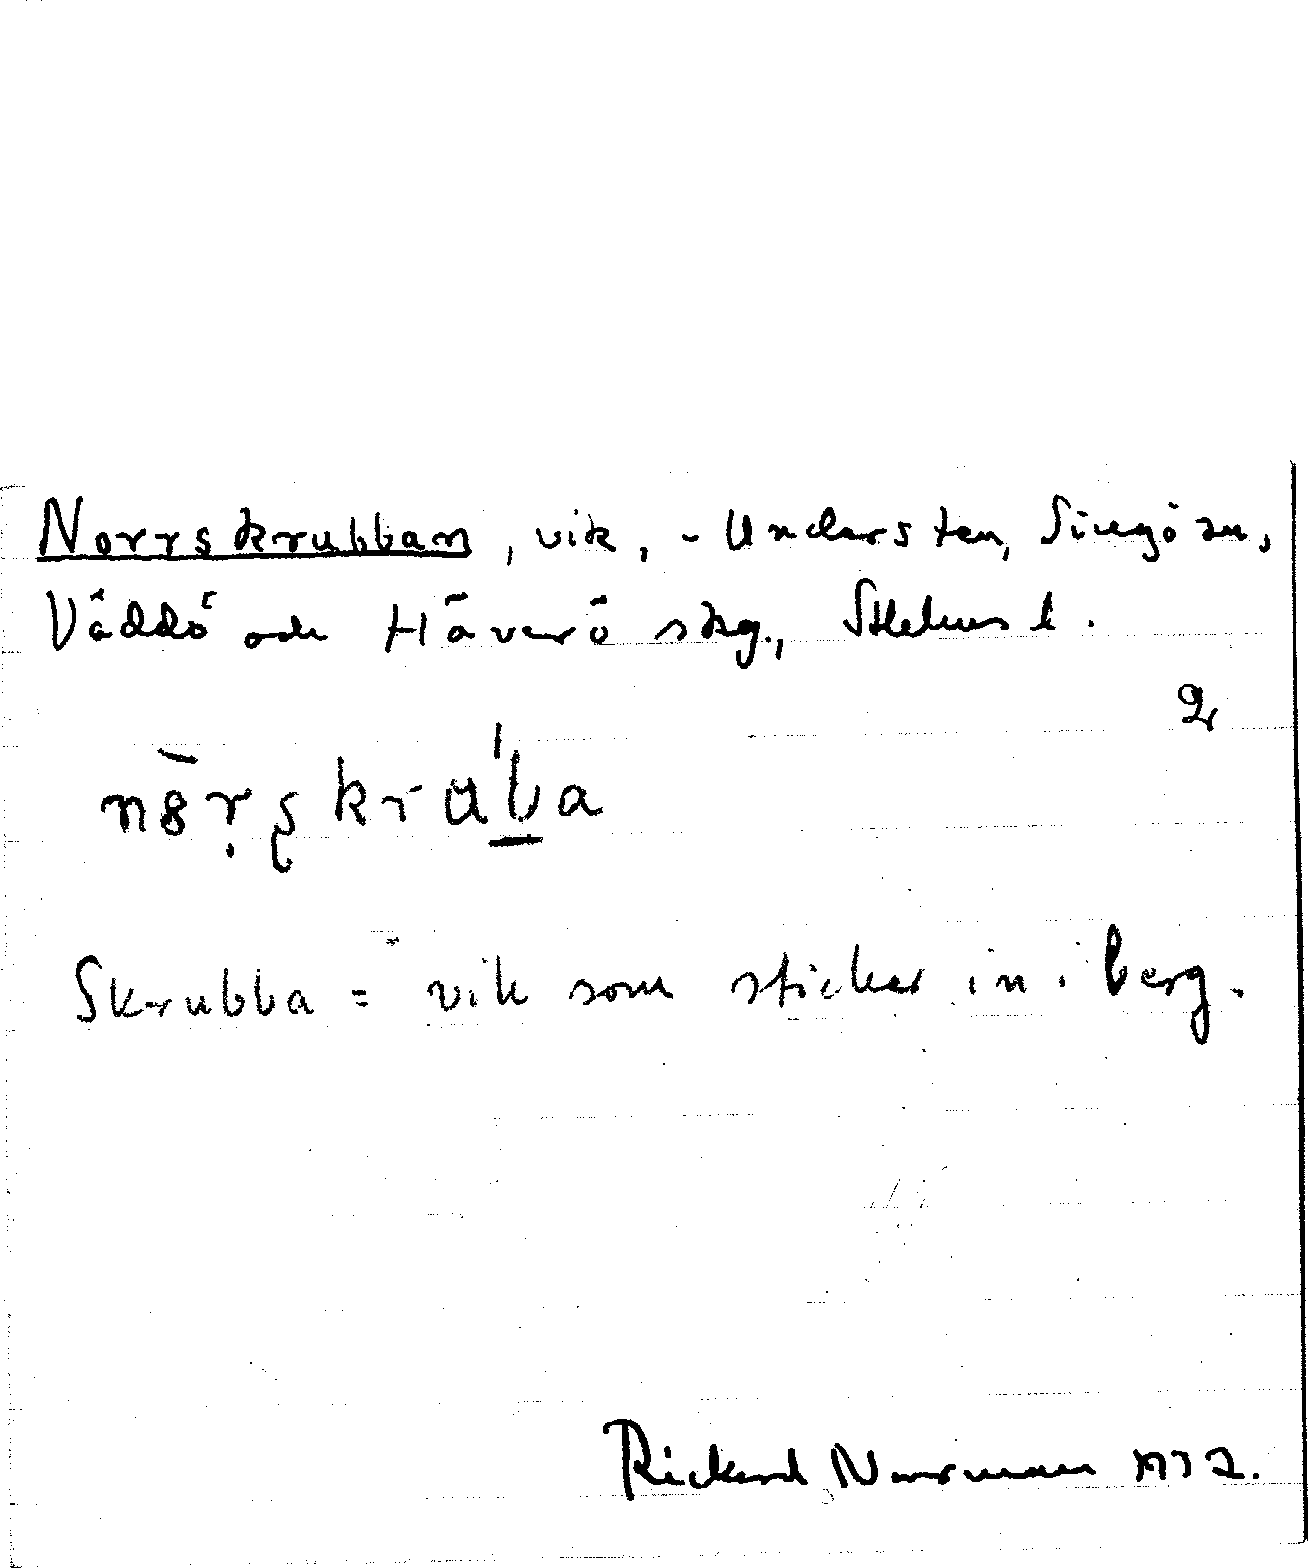 Norrskrubban, vik, - Understen, Singö sn,
Väddö och Häverö skg., Sthlms l.
2
Skrubba = vik som sticker in i berg.
Rickard Norrman